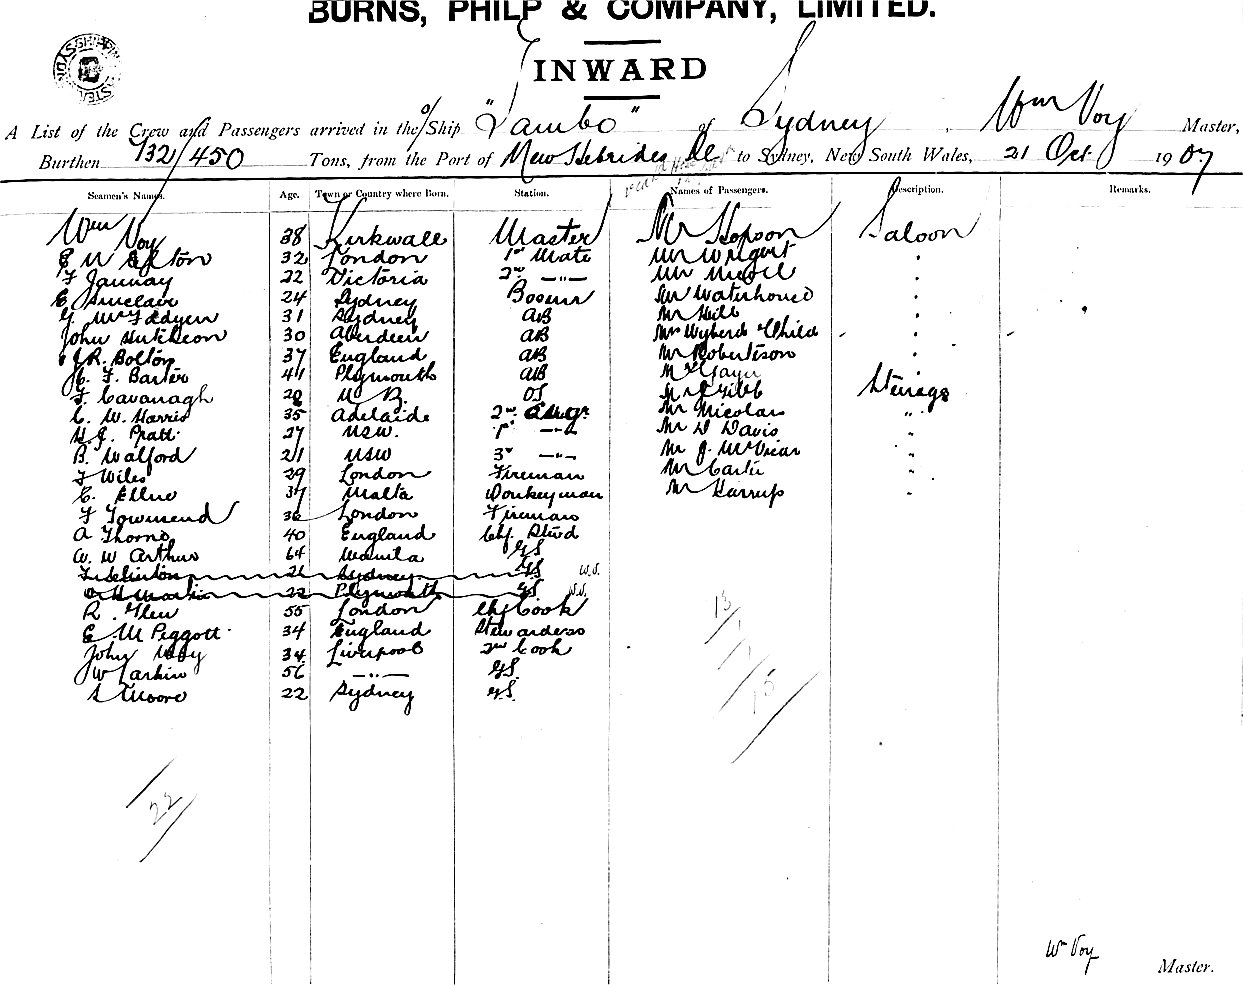 BURNS, PHILP & COMPANY, LIMITED.
INWARD
A List of the Crew and Passengers arrived in the S/Ship "Tambo" of Sydney, Wm Voy Master,
Burthen 732/450 Tons, from the Port of New Hebrides &c to Sydney, New South Wales, 21 Oct 1907
Seamen's Names. Age. Town or Country where Born. Station. Names of Passengers. Description. Remarks.
Wm Voy 38 Kirkwall Master Mr Hopson Saloon
32 London 1st Mate Mr Wright
F Jannay 22 Victoria 2nd —"— Mr
C Sinclair 24 Sydney Bosun Mr Waterhouse
G McFadyen 31 Sydney AB Mr Hill
John Hutcheon 30 Aberdeen AB Mrs & Child
J R. Bolton 37 England AB Mr Robertson
F. Baxter 44 Plymouth AB
F Cavanagh 28 OS Steerage
C. W. Harris 35 Adelaide 2nd Engr Mr Nicolas "
H. J. Pratt 27 NSW. 1st —"— Mr D Davis "
B. Walford 21 NSW 3rd —"— Mr J. McVicar "
F Wiles 29 London Fireman Mr Carter "
C. 37 Malta Donkeyman Mr Harrup "
F Townsend 36 London Fireman
A Thorne 40 England Chf. Stwd
W. W Arthur 64 Manila GS
21 Sydney GS W.S.
22 Plymouth GS W.S.
R. Glen 55 London Chf Cook
E M Peggott 34 England Stewardess
John 34 Liverpool 2nd Cook
W Larkin 56 —"— GS
S Moore 22 Sydney GS
22
Wm Voy
Master.